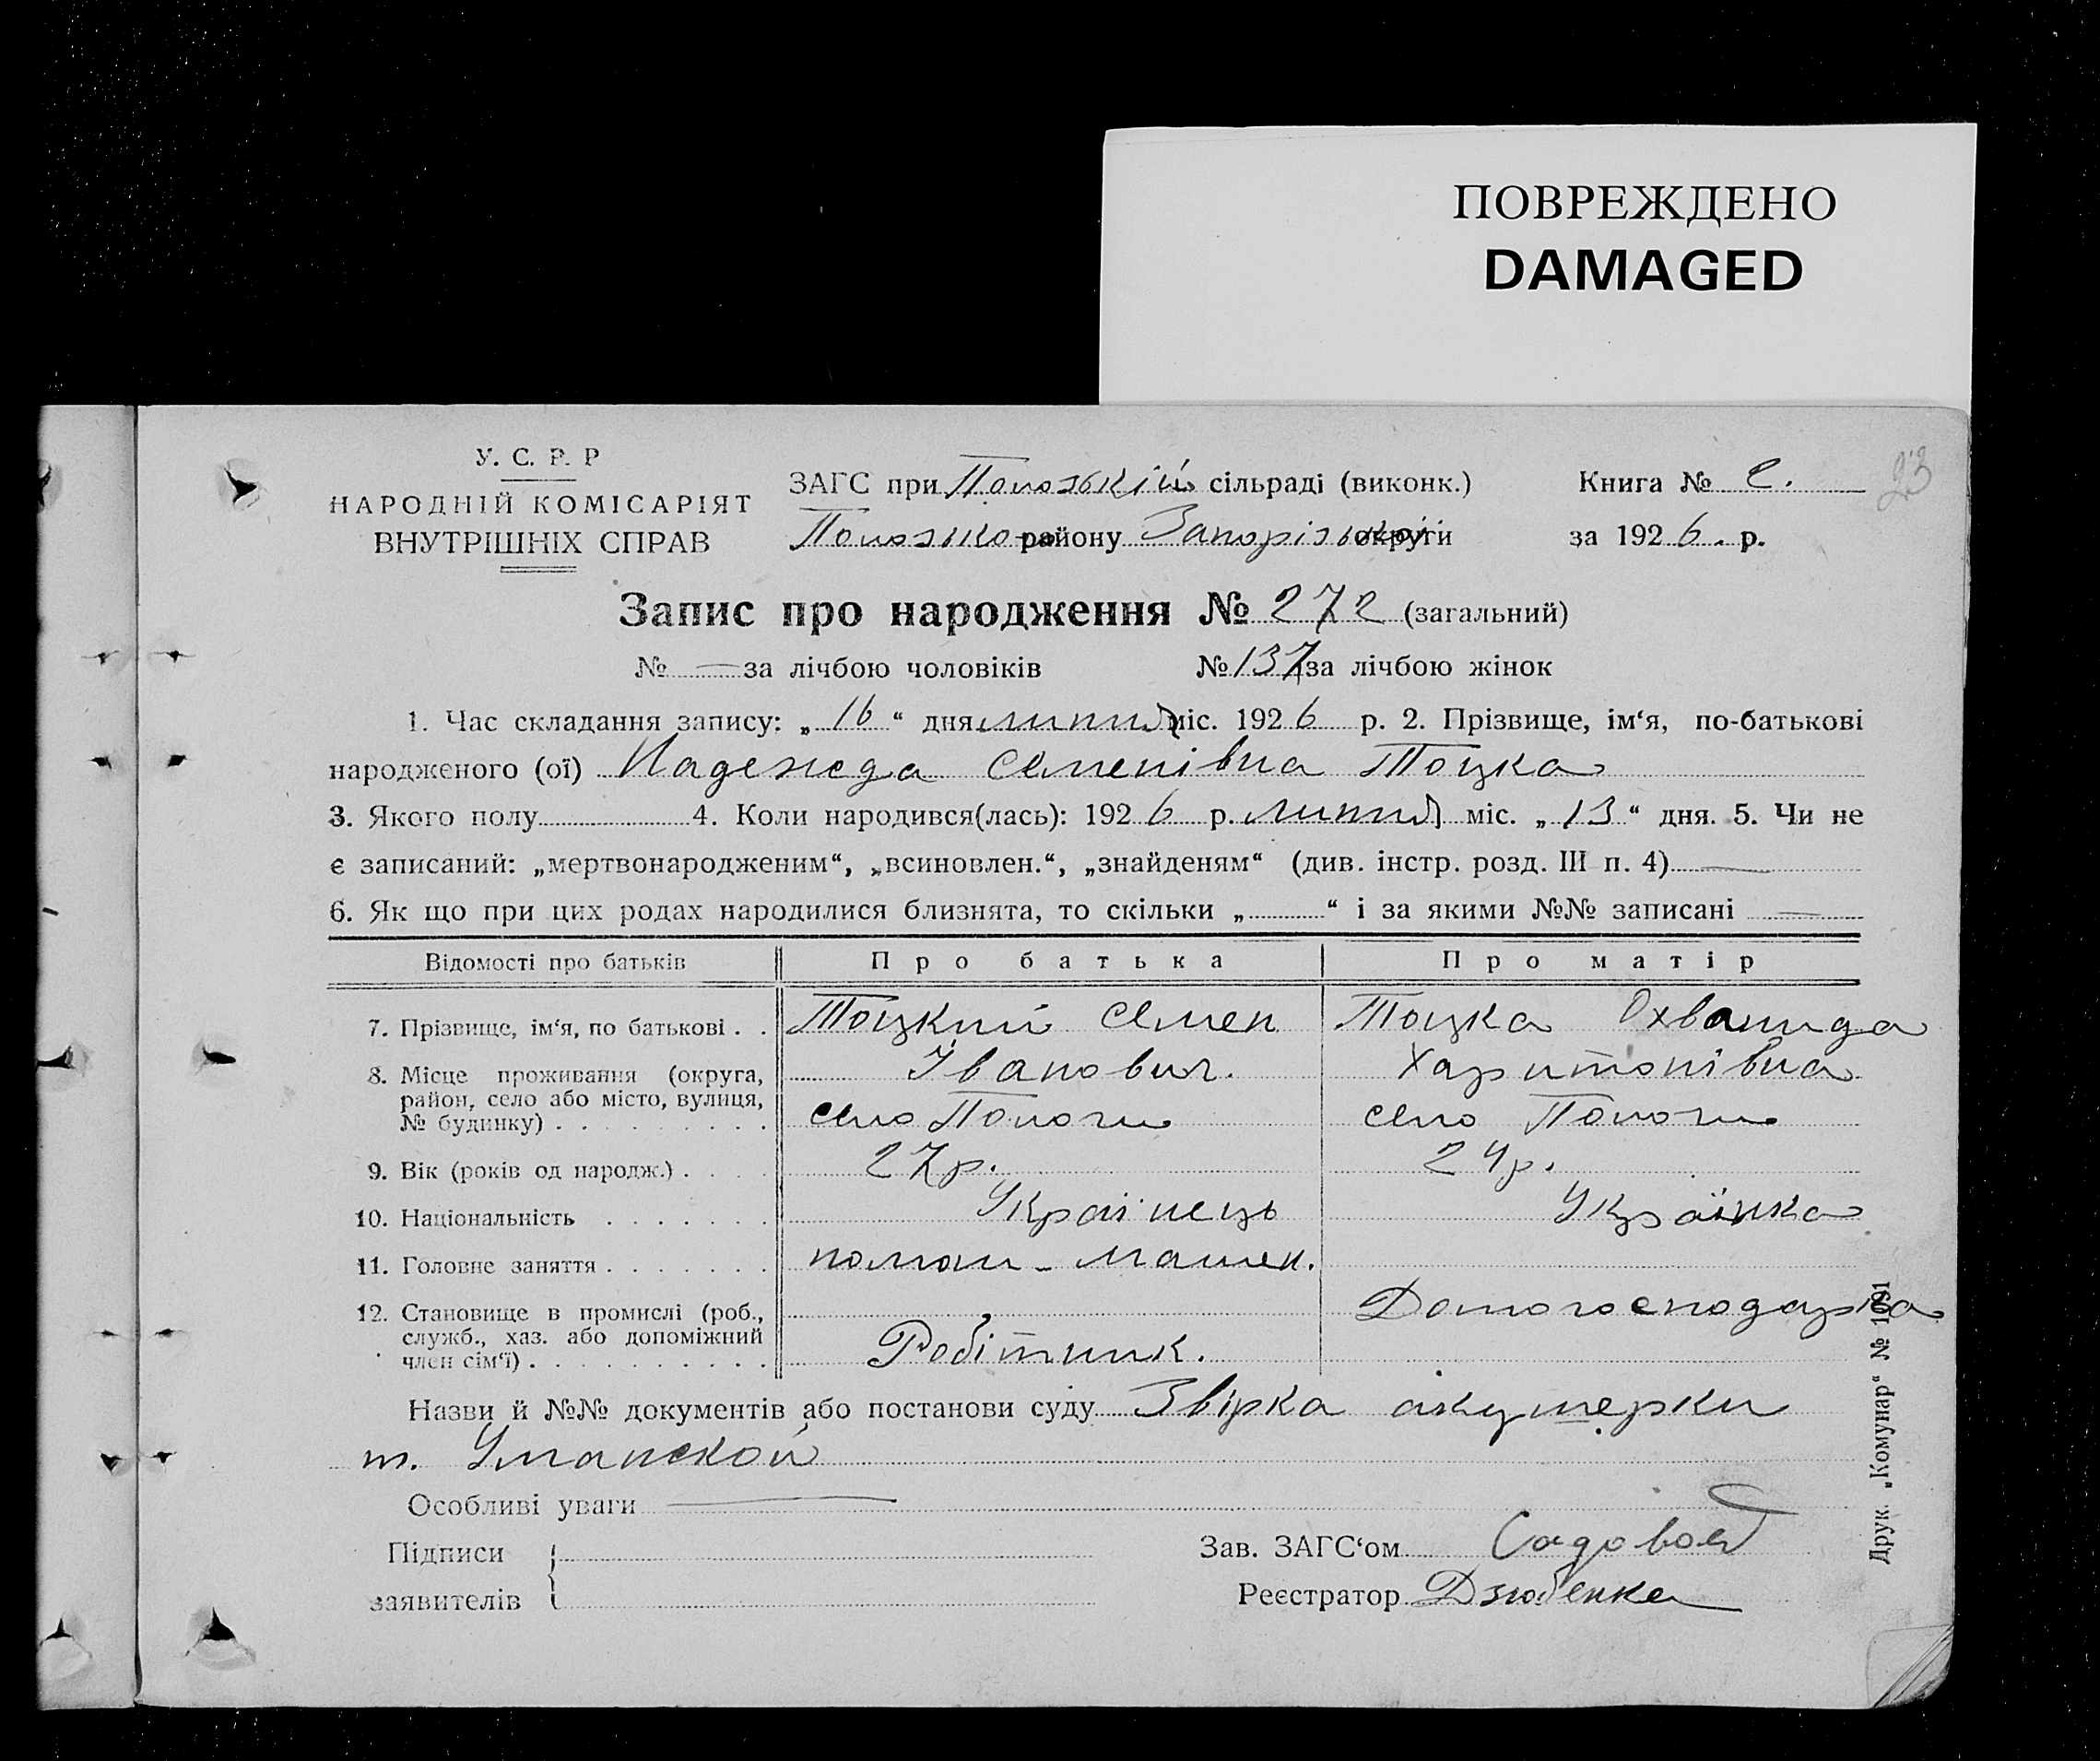 ПОВРЕЖДЕНО
DAMAGED
23
У. С. Р. Р
НАРОДНІЙ КОМІСАРІЯТ
ВНУТРІШНІХ СПРАВ
ЗАГС при Пологській сільраді (виконк.)
району Запорізької округи
Книга № 2.
за 1926. р.
Запис про народження № 272 (загальний)
№ — за лічбою чоловіків № 137 за лічбою жінок
1. Час складання запису: „16“ дня липня міс. 1926 р. 2. Прізвище, ім‘я, по-батькові
народженого (ої) Надежда Семенівна Тоцка
3. Якого полу 4. Коли народився(лась): 1926 р. липня міс. „13“ дня. 5. Чи не
є записаний: „мертвонародженим“, „всиновлен.“, „знайденям“ (див. інстр. розд. III п. 4) —
6. Як що при цих родах народилися близнята, то скільки „ “ і за якими №№ записані —
Відомості про батьків Про батька Про матір
7. Прізвище, ім‘я, по батькові . . Тоцкий Семен Тоцка
Іванович. Харитонівна
8. Місце проживання (округа,
район, село або місто, вулиця,
№ будинку) . . . . . . . . . село Пологи село Пологи
9. Вік (років од народж.) . . . . 27р. 24р.
10. Національність . . . . . . . Українець Українка
11. Головне заняття . . . . . . . помош - машен.
12. Становище в промислі (роб.,
служб., хаз. або допоміжний
член сім‘ї) . . . . . . . . . . Робітник. Домогосподарка
Назви й №№ документів або постанови суду Звірка акушерки
т. Уманской
Особливі уваги —
Підписи
заявителів
Зав. ЗАГС‘ом
Реєстратор Дзюбенко
Друк. „Комунар“ № 1091